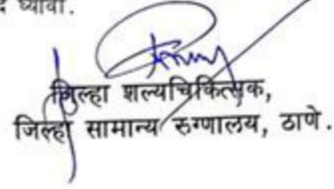 द्यावी.
जिल्हा शल्यचिकित्सक,
जिल्हा सामान्य रुग्णालय, ठाणे.